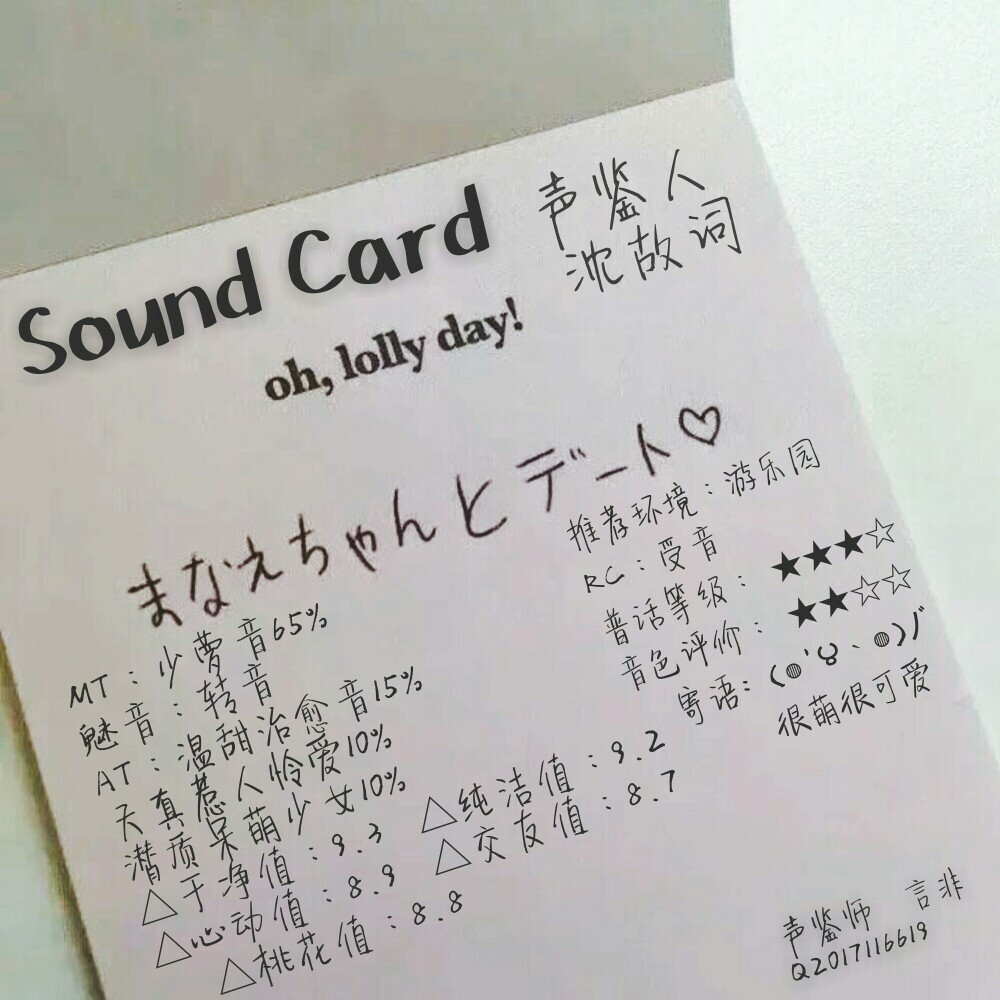 Sound Card
声鉴人
沈故词
oh, lolly day!
まなえちゃんとデート♡
推荐环境：游乐园
RC：受音
普话等级：★★★☆
音色评价：★★☆☆
寄语：(◍'౪`◍)ﾉﾞ
很萌很可爱
MT：少萝音65%
魅音：转音
AT：温甜治愈音15%
天真惹人怜爱10%
潜质呆萌少女10%
△干净值：9.3
△纯洁值：9.2
△心动值：8.9
△交友值：8.7
△桃花值：8.8
声鉴师 言非
Q2017116619